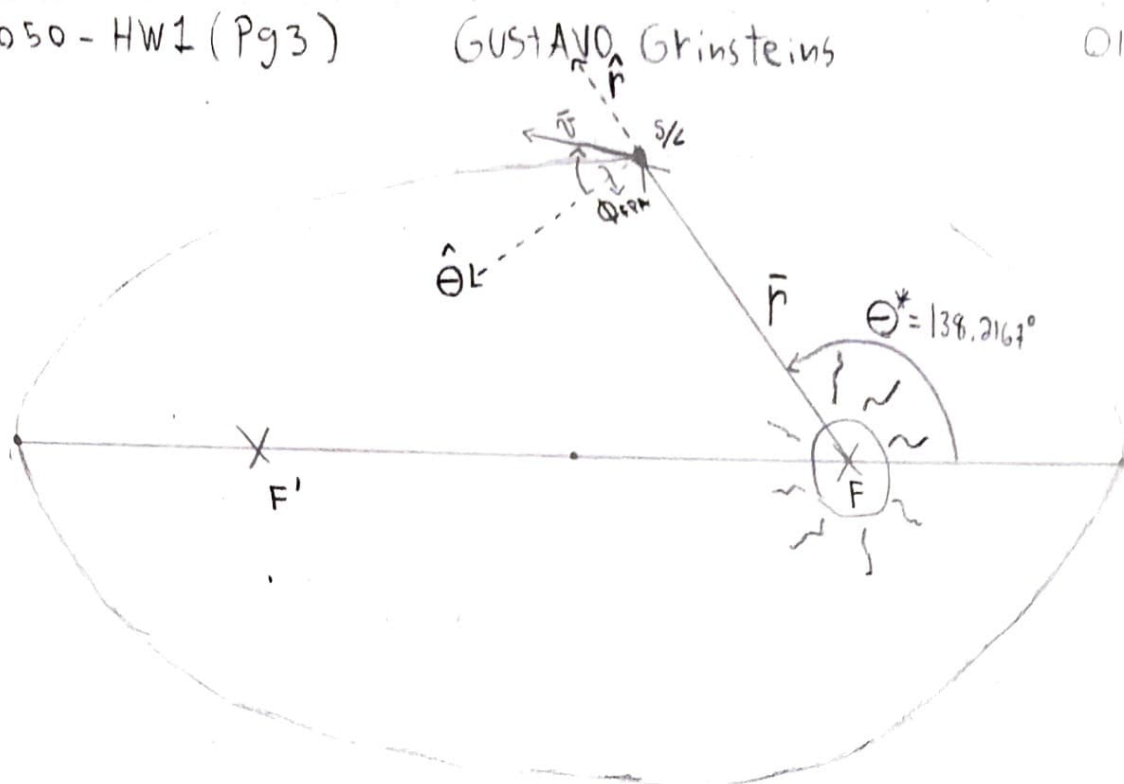 050 - HW1 (Pg3) GUStAVO Grinsteins 01
r̂
v̄ S/C
ΦFPA
θ̂
r̄
θ* = 138.2167°
F'
F